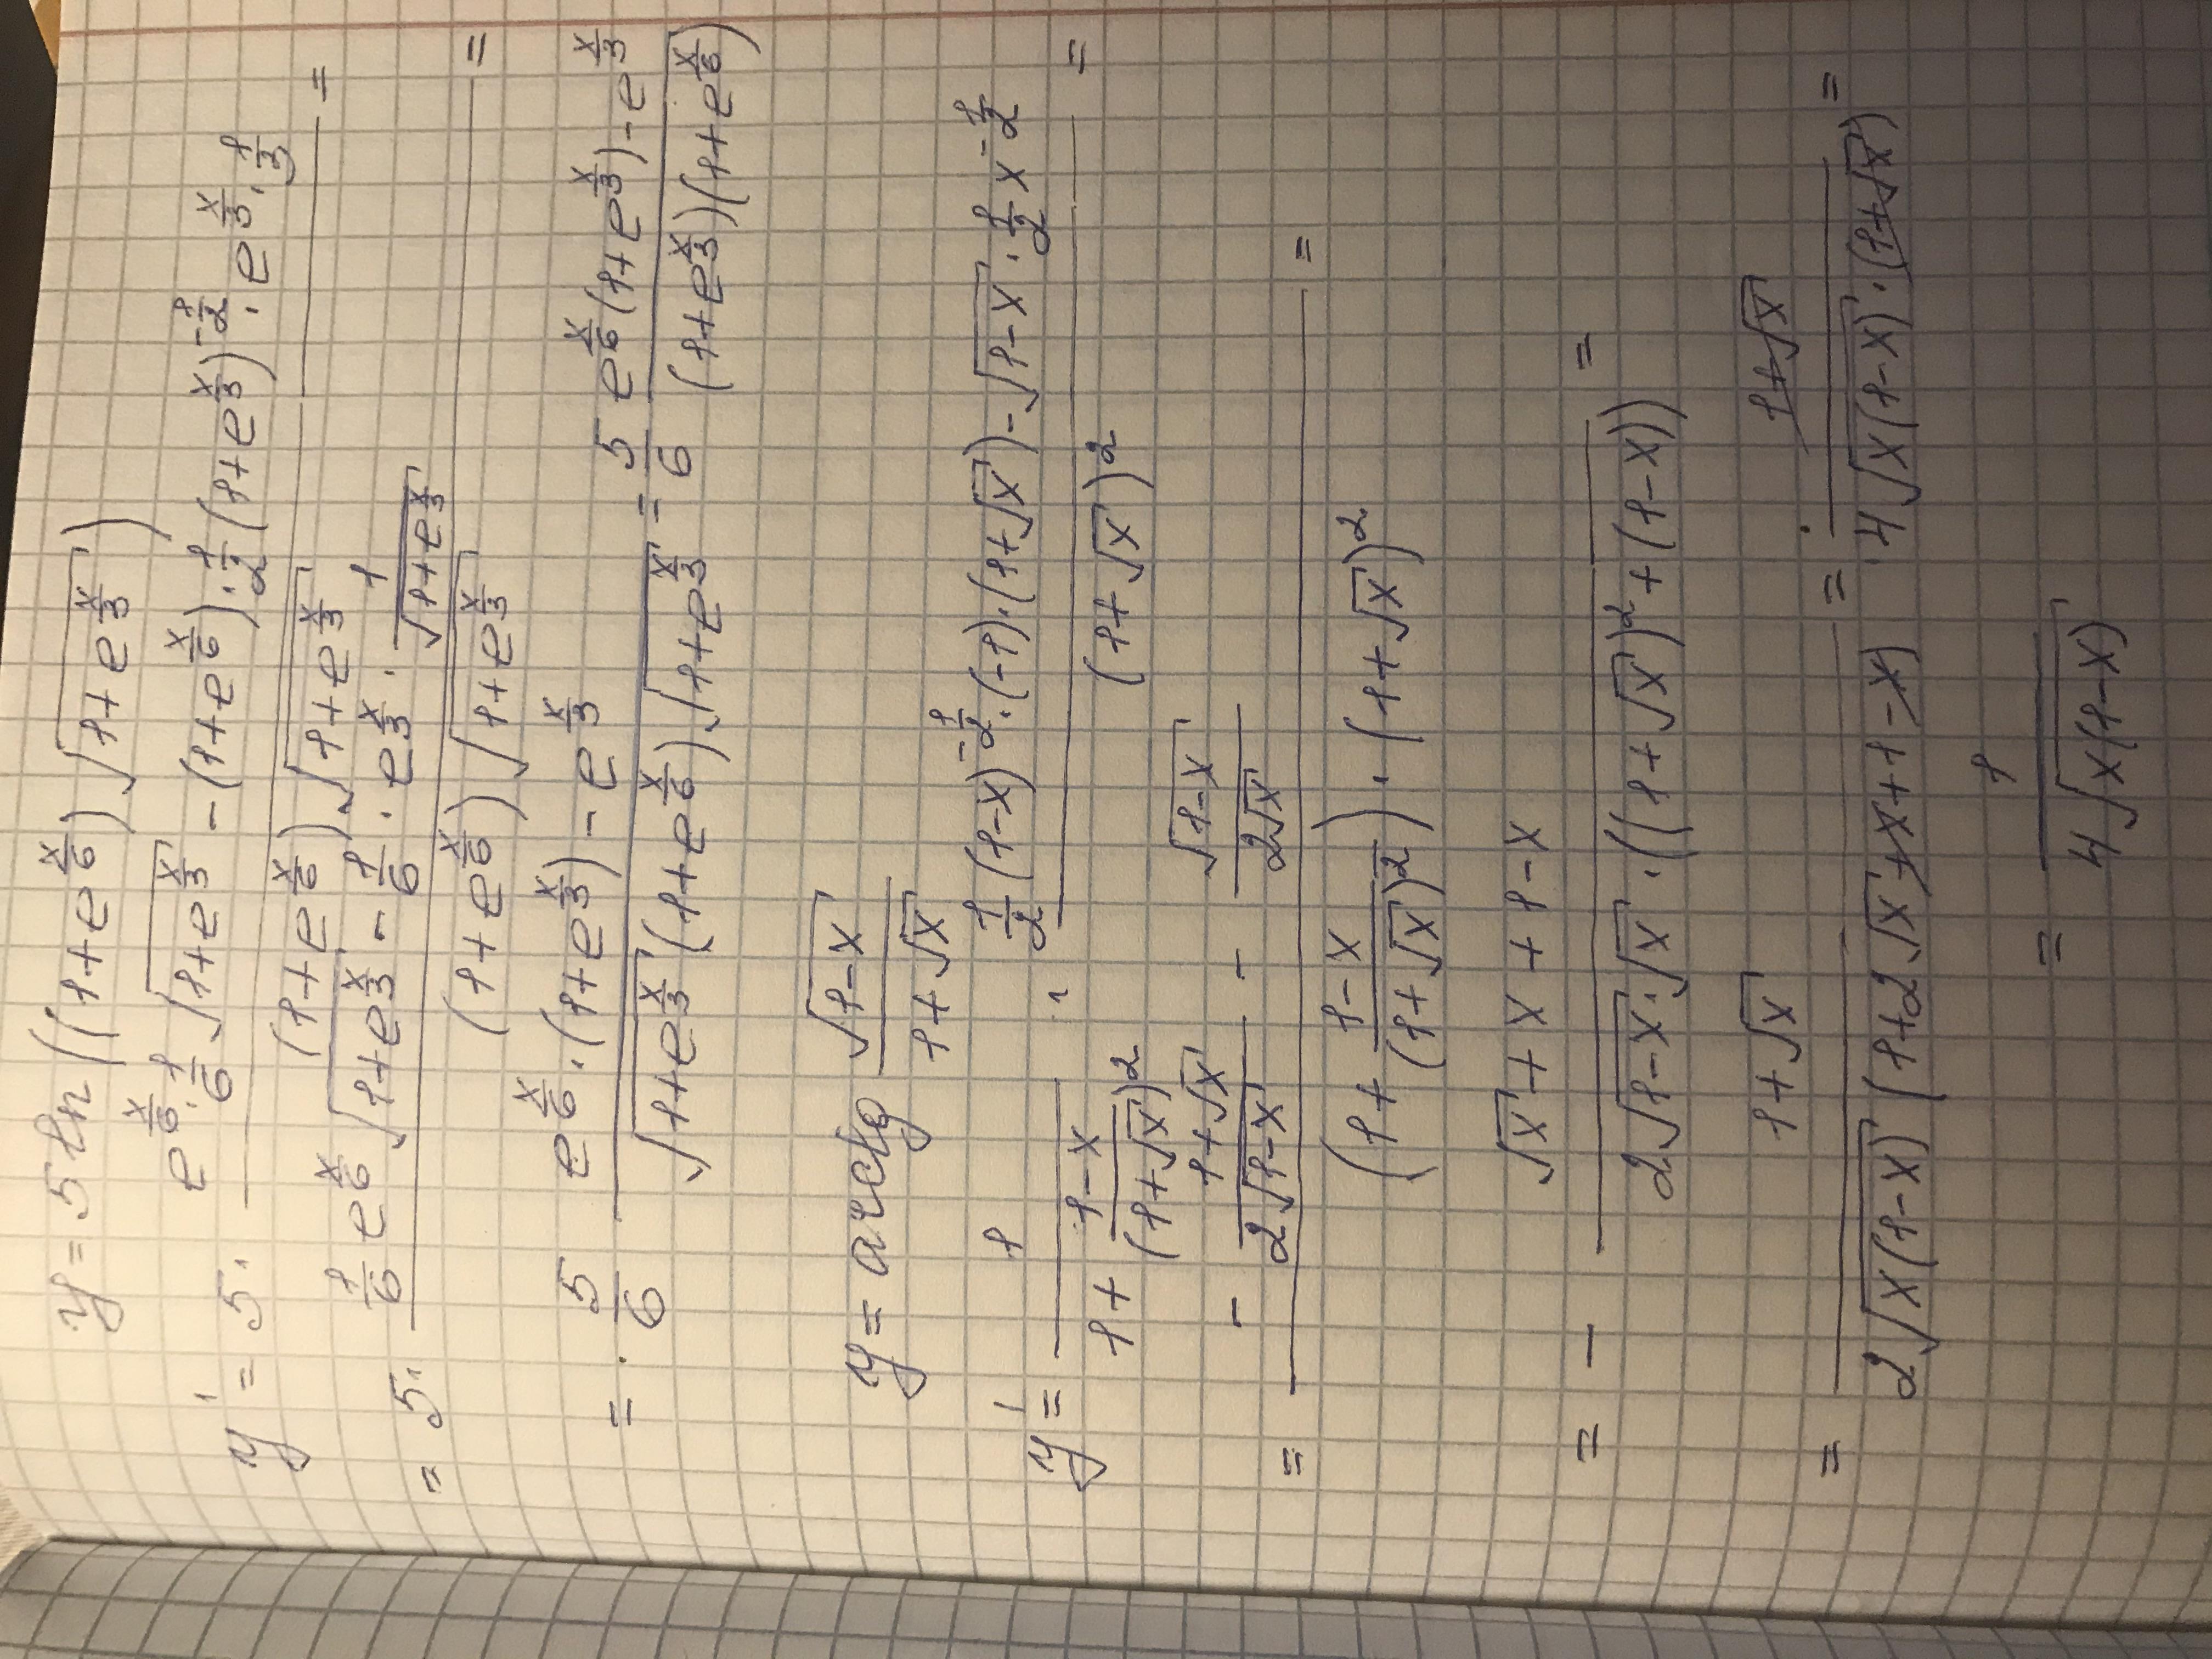 y = 5 ln ((1+e^{x/6}) √(1+e^{x/3}))
y' = 5 · (e^{x/6} · 1/6 √(1+e^{x/3}) − (1+e^{x/6}) · 1/2 (1+e^{x/3})^{−1/2} · e^{x/3} · 1/3) / ((1+e^{x/6}) √(1+e^{x/3})) =
= 5 · (1/6 e^{x/6} √(1+e^{x/3}) − 1/6 · e^{x/3} · 1/√(1+e^{x/3})) / ((1+e^{x/6}) √(1+e^{x/3})) =
= 5/6 · (e^{x/6} · (1+e^{x/3}) − e^{x/3}) / (√(1+e^{x/3}) (1+e^{x/6}) √(1+e^{x/3})) = 5/6 (e^{x/6} (1+e^{x/3}) − e^{x/3}) / ((1+e^{x/3})(1+e^{x/6}))
y = arctg √(1−x) / (1+√x)
y' = 1 / (1 + (1−x)/(1+√x)^2) · (1/2 (1−x)^{−1/2} · (−1) · (1+√x) − √(1−x) · 1/2 x^{−1/2}) / (1+√x)^2 =
= (− (1+√x)/(2√(1−x)) − √(1−x)/(2√x)) / ((1 + (1−x)/(1+√x)^2) · (1+√x)^2) =
= − (√x + x + 1 − x) / (2√(1−x) · √x · ((1+√x)^2 + (1−x))) =
= (1+√x) / (2√(x(1−x)) (1+2√x+x+1−x)) = (1+√x) / (4√(x(1−x)) · (1+√x)) =
= 1 / (4√(x(1−x)))